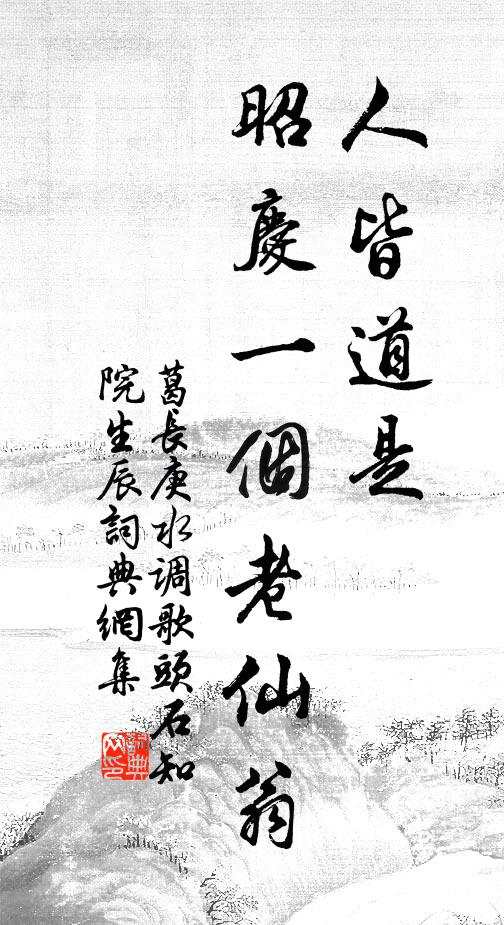 人皆道是
昭慶一個老仙翁
葛長庚水调歌頭石知
院生辰詞典網集
詞典